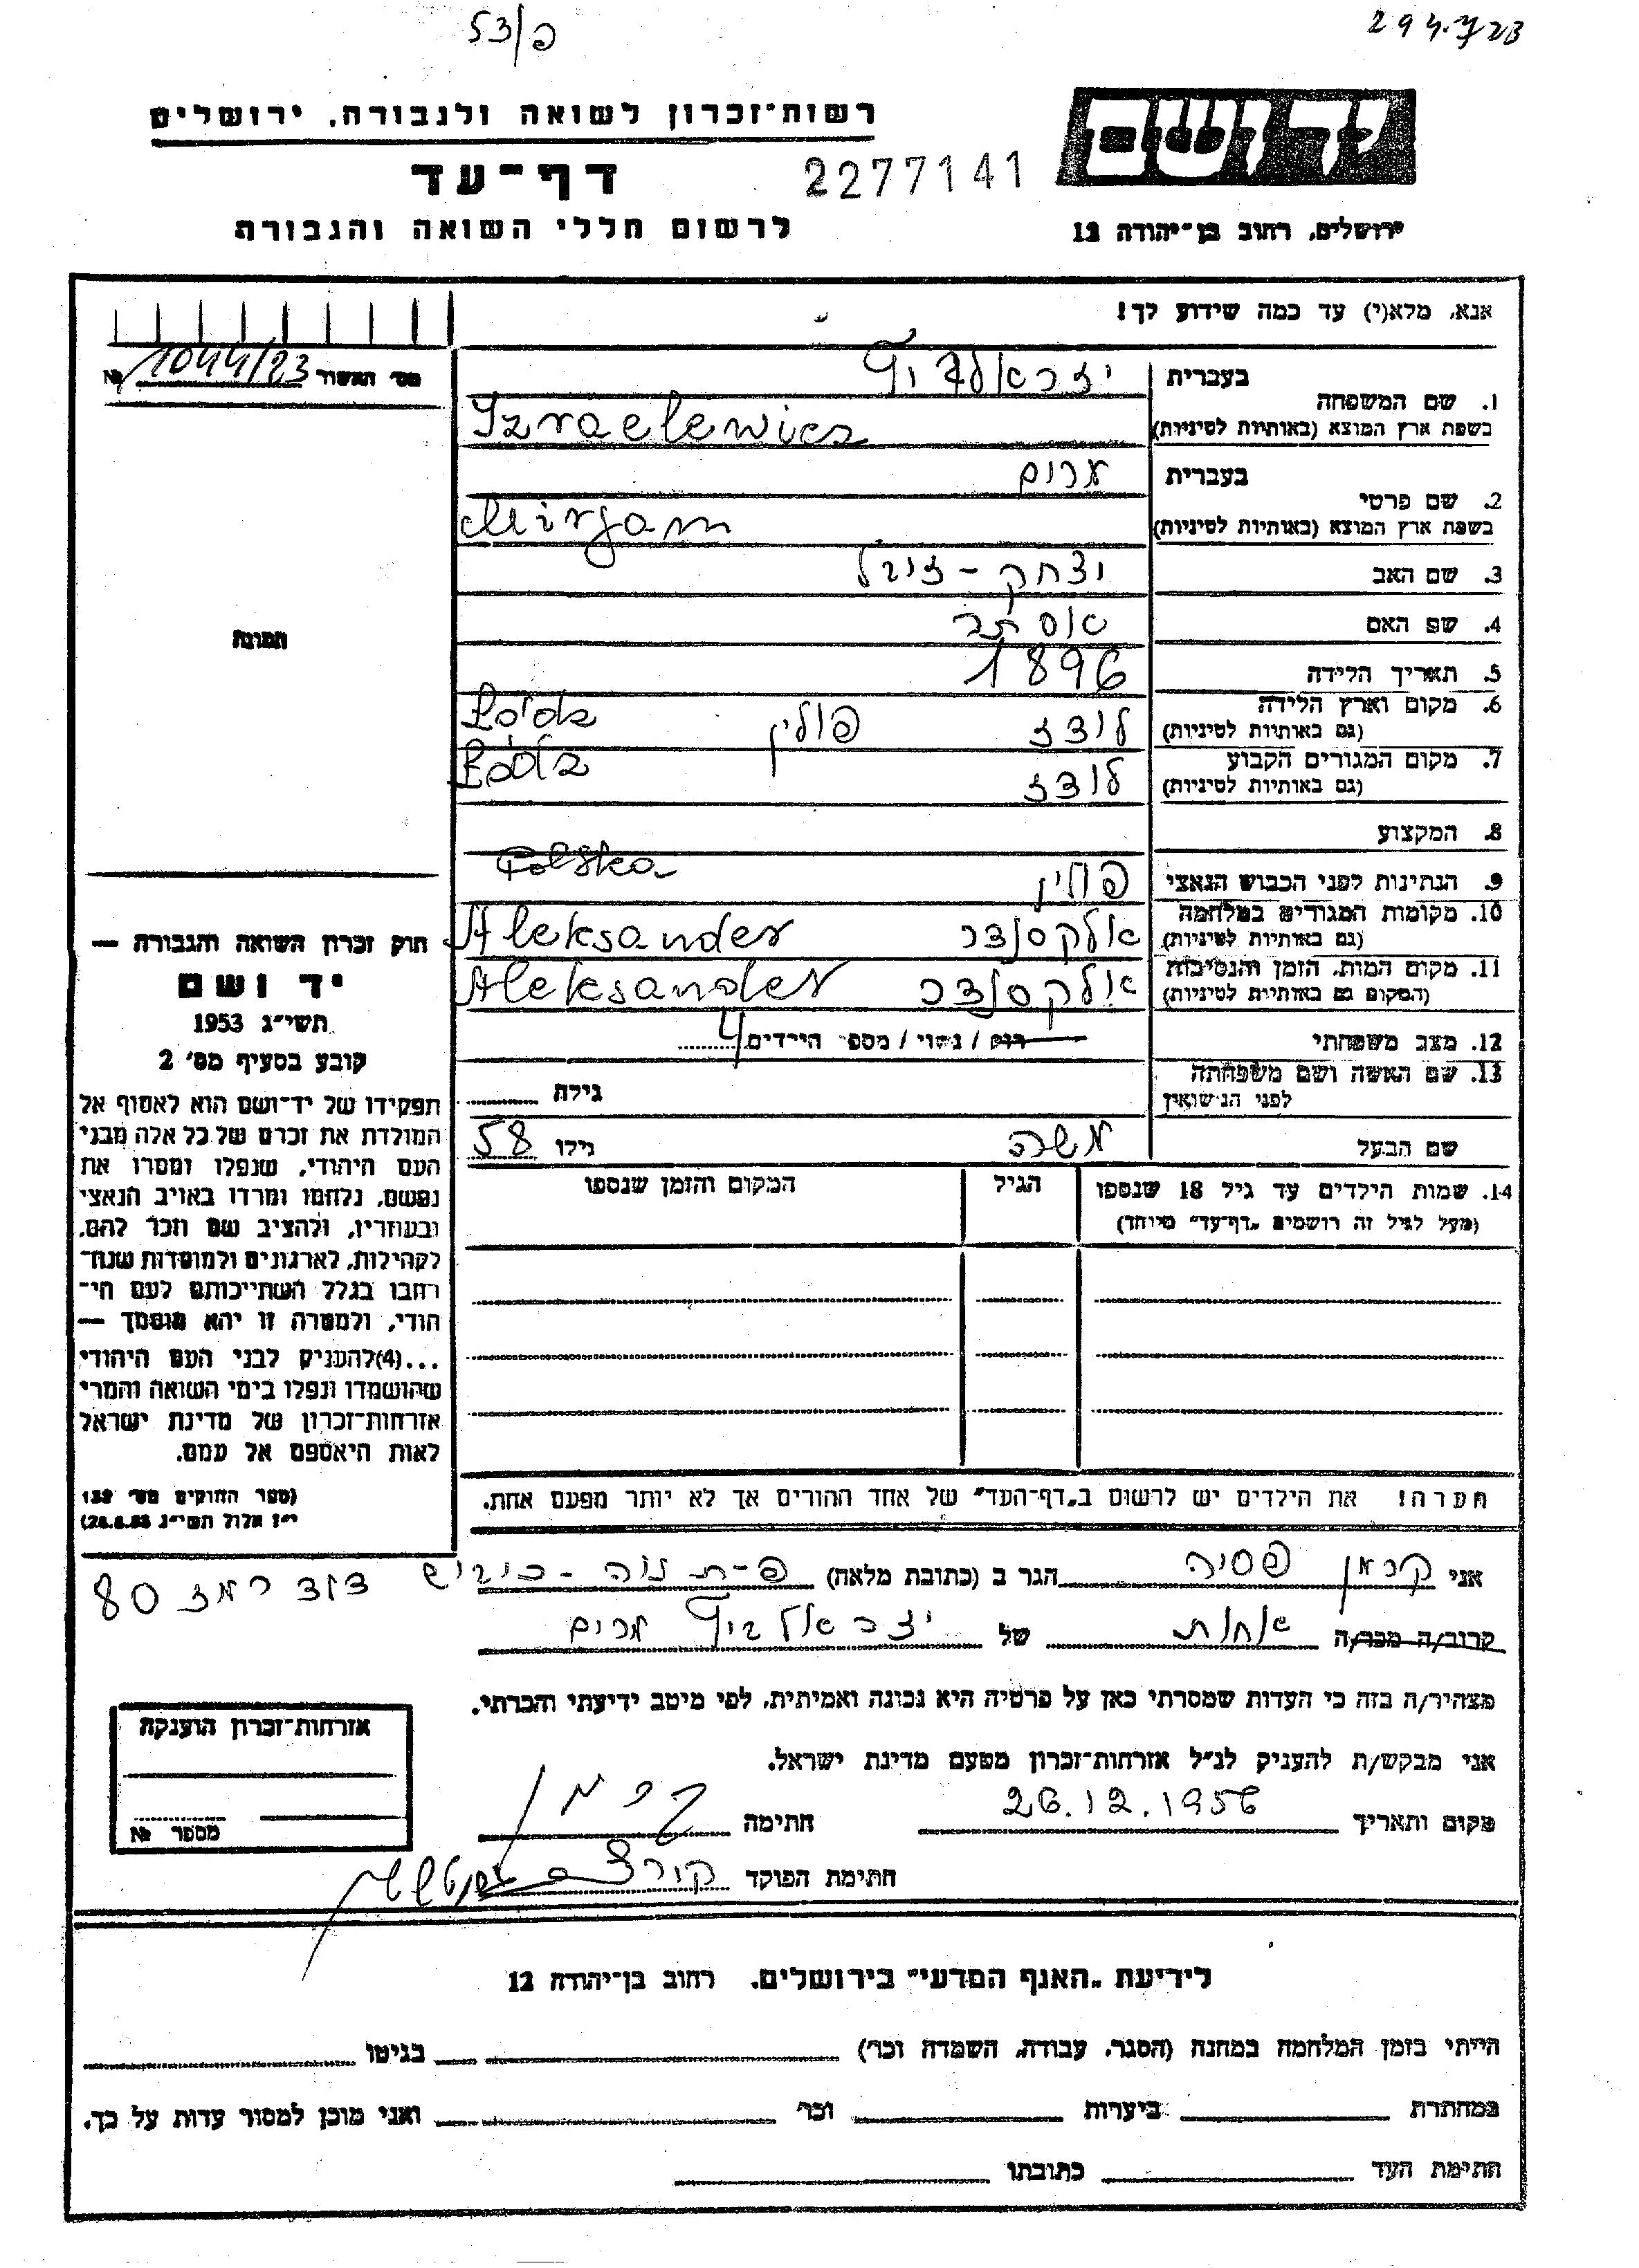 53/פ
294.723
רשות־זכרון לשואה ולגבורה, ירושלים
יד ושם
דף־עד
2277141
לרשום חללי השואה והגבורה
ירושלים, רחוב בן־יהודה 12
אנא, מלא(י) עד כמה שידוע לך!
מס׳ האשור 1044/23 №
בעברית
1. שם המשפחה
בשפת ארץ המוצא (באותיות לטיניות) Izraelewicz
בעברית מרים
2. שם פרטי
בשפת ארץ המוצא (באותיות לטיניות) Mirjam
3. שם האב יצחק -
4. שם האם אסתר
תמונה
5. תאריך הלידה 1896
6. מקום וארץ הלידה
(גם באותיות לטיניות) לודז פולין Łódz
7. מקום המגורים הקבוע
(גם באותיות לטיניות) לודז Łódz
8. המקצוע
9. הנתינות לפני הכבוש הנאצי פולין Polska
10. מקומות המגורים במלחמה
(גם באותיות לטיניות) אלקסנדר Aleksander
11. מקום המות, הזמן והנסיבות
(המקום גם באותיות לטיניות) אלקסנדר Aleksander
12. מצב משפחתי רווק / נשוי / מספר הילדים 4
13. שם האשה ושם משפחתה
לפני הנישואין גילה
שם הבעל משה גילו 58
14. שמות הילדים עד גיל 18 שנספו הגיל המקום והזמן שנספו
(מעל לגיל זה רושמים „דף־עד" מיוחד)
חוק זכרון השואה והגבורה —
יד ושם
תשי״ג 1953
קובע בסעיף מס׳ 2
תפקידו של יד־ושם הוא לאסוף אל
המולדת את זכרם של כל אלה מבני
העם היהודי, שנפלו ומסרו את
נפשם, נלחמו ומרדו באויב הנאצי
ובעוזריו, ולהציב שם וזכר להם,
לקהילות, לארגונים ולמוסדות שנח־
רבו בגלל השתייכותם לעם הי־
הודי, ולמטרה זו יהא מוסמך —
...(4)להעניק לבני העם היהודי
שהושמדו ונפלו בימי השואה והמרי
אזרחות־זכרון של מדינת ישראל
לאות היאספם אל עמם.
(ספר החוקים מס׳ 132
י״ז אלול תשי״ג 28.8.53)
הערה! את הילדים יש לרשום ב„דף־העד" של אחד ההורים אך לא יותר מפעם אחת.
אני קרמן פסיה הגר ב (כתובת מלאה) פ-ת נוה - דוד רמז 80
קרוב/ה מכר/ה אחות של מרים
מצהיר/ה בזה כי העדות שמסרתי כאן על פרטיה היא נכונה ואמיתית, לפי מיטב ידיעתי והכרתי.
אני מבקש/ת להעניק לנ״ל אזרחות־זכרון מטעם מדינת ישראל.
מקום ותאריך 26.12.1956 חתימה קרמן
חתימת הפוקד
אזרחות־זכרון הוענקה
מספר №
לידיעת „האגף המדעי" בירושלים, רחוב בן־יהודה 12
הייתי בזמן המלחמה במחנה (הסגר, עבודה, השמדה וכו׳) בגיטו
במחתרת ביערות וכו׳ ואני מוכן למסור עדות על כך.
חתימת העד כתובתו